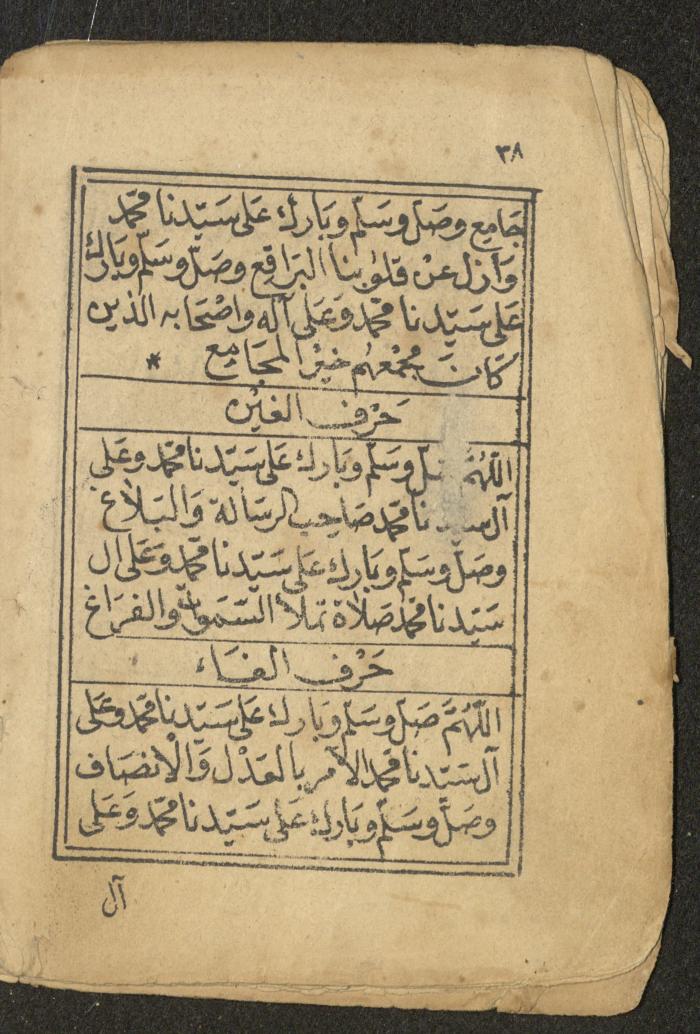 ٣٨
جَامِعٍ وصَلّ وسَلّم وبَارك عَلى سَيّدنا محمّد
وَأزل عَنْ قلُوبنا البَرَاقع وصَلّ وسَلّم وبَارك
عَلى سَيّدنا محمّد وَعَلى آله واصْحَابه الذين
كَانَ مجمَعهُم خيْر المجَامِع *
حَرْف الغيْن
اللّهُمَّ صلّ وسَلّم وبَارك عَلى سَيّدنا محمّد وعَلى
آل سيدنا محمّد صَاحِب الرسَالة وَالبَلَاغ
وصَلّ وسَلّم وبَارك عَلى سَيّدنا محمّد وَعَلى ال
سَيّدنا محمّد صَلَاة تملأ السّمَوات والفرَاغ
حَرْف الفَاء
اللّهُمَّ صَلّ وسَلّم وبَارك عَلى سَيّدنا محمّد وعَلى
آل سَيّدنا محمّد الآمر بالعَدْل وَالْانصَاف
وصَلّ وسَلّم وبَارك عَلى سَيّدنا محمّد وَعَلى
آل